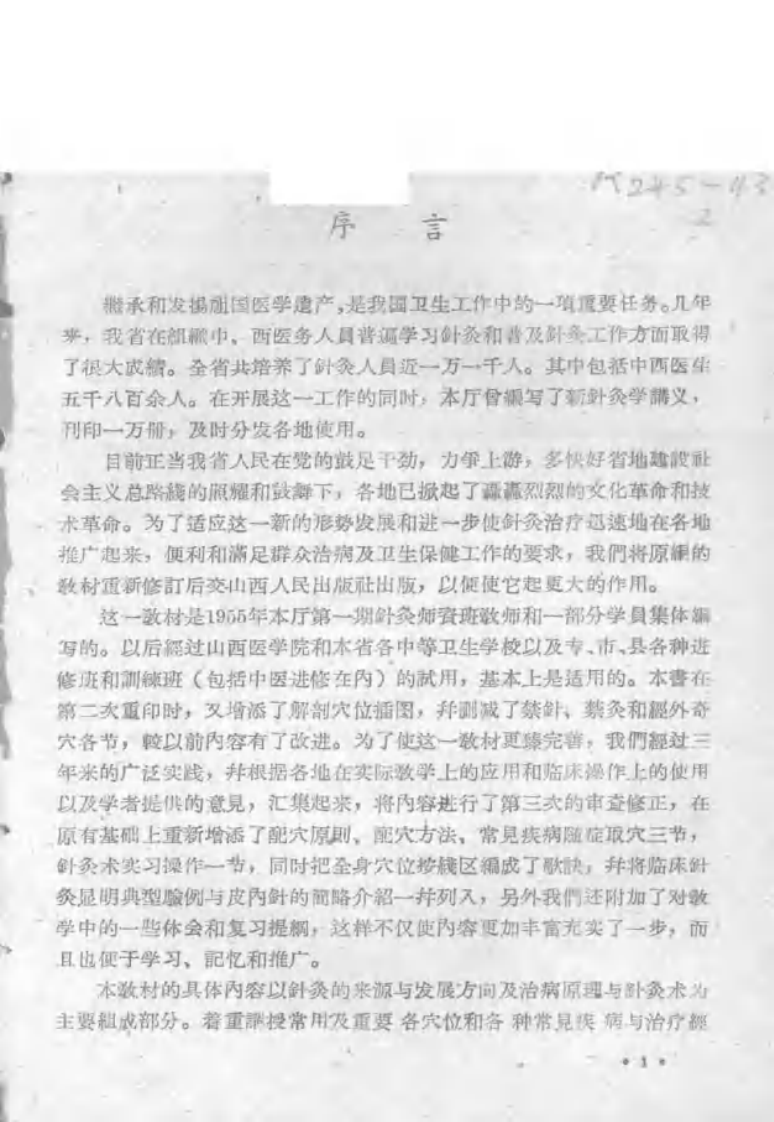 245-43
2
序 言
继承和发揚祖国医学遺产，是我国卫生工作中的一項重要任务。几年
来，我省在組織中、西医务人員普遍学习針灸和普及針灸工作方面取得
了很大成績。全省共培养了針灸人員近一万一千人。其中包括中西医生
五千八百余人。在开展这一工作的同时，本厅曾編写了新針灸学講义，
刊印一万册，及时分发各地使用。
目前正当我省人民在党的鼓足干劲，力爭上游，多快好省地建設社
会主义总路綫的照耀和鼓舞下，各地已掀起了轟轟烈烈的文化革命和技
术革命。为了适应这一新的形势发展和进一步使針灸治疗迅速地在各地
推广起来，便利和满足群众治病及卫生保健工作的要求，我們将原編的
教材重新修訂后交山西人民出版社出版，以便使它起更大的作用。
这一教材是1955年本厅第一期針灸师資班教师和一部分学員集体編
写的。以后經过山西医学院和本省各中等卫生学校以及专、市、县各种进
修班和訓練班（包括中医进修在內）的試用，基本上是适用的。本書在
第二次重印时，又增添了解剖穴位插图，幷删减了禁針、禁灸和經外奇
穴各节，較以前內容有了改进。为了使这一教材更臻完善，我們經过三
年来的广泛实践，幷根据各地在实际教学上的应用和临床操作上的使用
以及学者提供的意見，汇集起来，将內容进行了第三次的审查修正，在
原有基础上重新增添了配穴原則、配穴方法、常見疾病随症取穴三节，
針灸术实习操作一节，同时把全身穴位按綫区編成了歌訣，幷将临床針
灸显明典型驗例与皮內針的簡略介紹一幷列入，另外我們还附加了对教
学中的一些体会和复习提綱，这样不仅使內容更加丰富充实了一步，而
且也便于学习、記忆和推广。
本教材的具体內容以針灸的来源与发展方向及治病原理与針灸术为
主要組成部分。着重講授常用及重要各穴位和各种常見疾病与治疗經
• 1 •